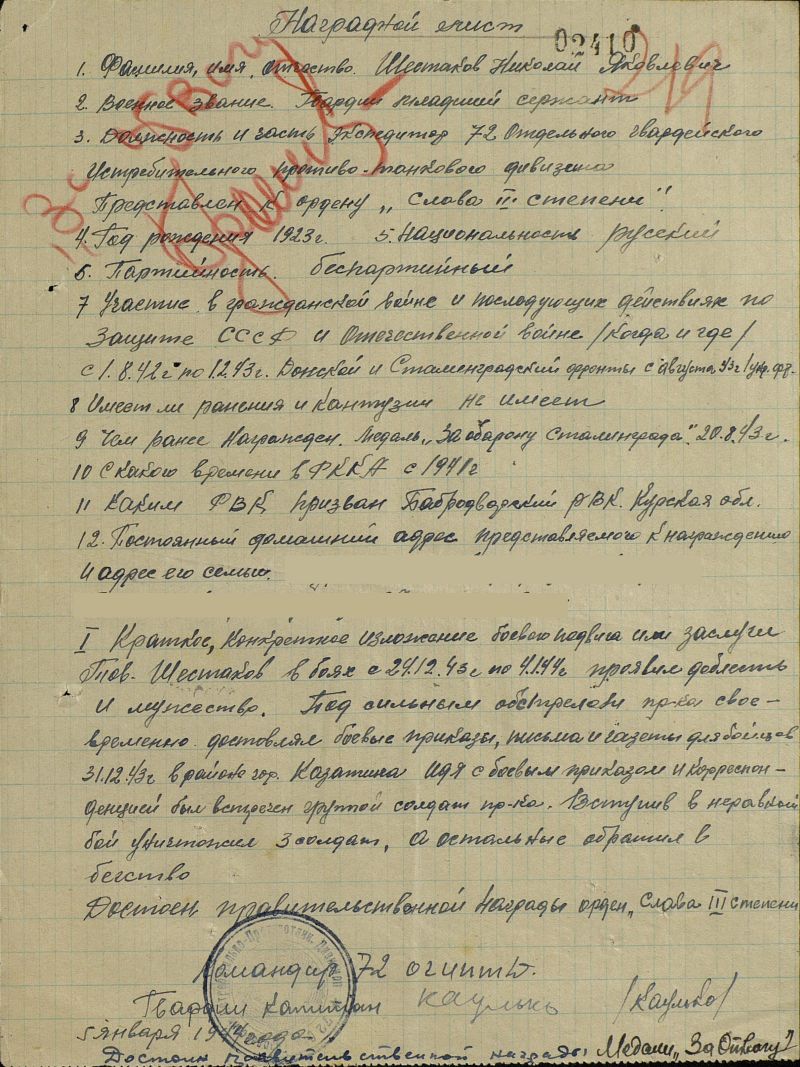 Наградной лист
02410
219
1. Фамилия, имя, отчество. Шестаков Николай Яковлевич
2. Военное звание. Гвардии младший сержант
3. Должность и часть Экспедитор 72 Отдельного гвардейского
Истребительного противо-танкового дивизиона
Представлен к ордену „Слава III степени"
4. Год рождения 1923г. 5. Национальность русский
6. Партийность. беспартийный
7 Участие в гражданской войне и последующих действиях по
Защите СССР и Отечественной войне /когда и где/
с 1.8.42г по 1.2.43г. Донской и Сталинградский фронты с августа 43г 1 укр. фр.
8 Имеет ли ранения и контузии не имеет
9 Чем ранее награжден. Медаль „За оборону Сталинграда". 20.8.43г.
10 С какого времени в РККА с 1941г
11 Каким РВК призван Бобродворский РВК. Курская обл.
12. Постоянный домашний адрес представляемого к награждению
и адрес его семьи.
I Краткое, конкретное изложение боевого подвига или заслуги
Тов. Шестаков в боях с 24.12.43г по 4.1.44г проявил доблесть
и мужество. Под сильным обстрелом пр-ка свое-
временно доставлял боевые приказы, письма и газеты для бойцов
31.12.43г в районе гор. Казатина идя с боевым приказом и корреспон-
денцией был встречен группой солдат пр-ка. Вступив в неравный
бой уничтожил 3 солдат, а остальные обратил в
бегство
Достоен правительственной награды орден „Слава III степени
Командир 72 огиптд.
Гвардии капитан Каулько /Каулько/
5 января 1944 года
Достоин правительственной награды Медали „За Отвагу"